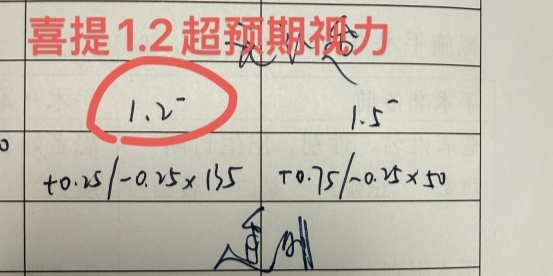 喜提1.2超预期视力
1.2⁻ 1.5⁻
+0.25/-0.25×135 +0.75/-0.25×50